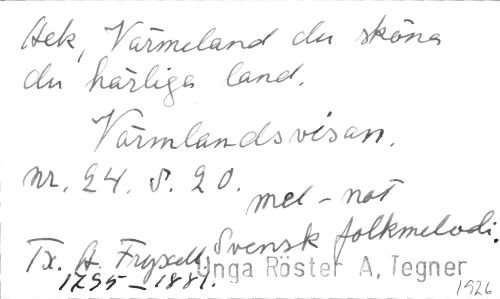 Ack, Värmeland du sköna
du härliga land.
Värmlandsvisan.
nr. 24. s. 20.
mel-not
Svensk folkmelodi.
Tx. A. Fryxell
1795-1881.
Unga Röster A, Tegner
1926